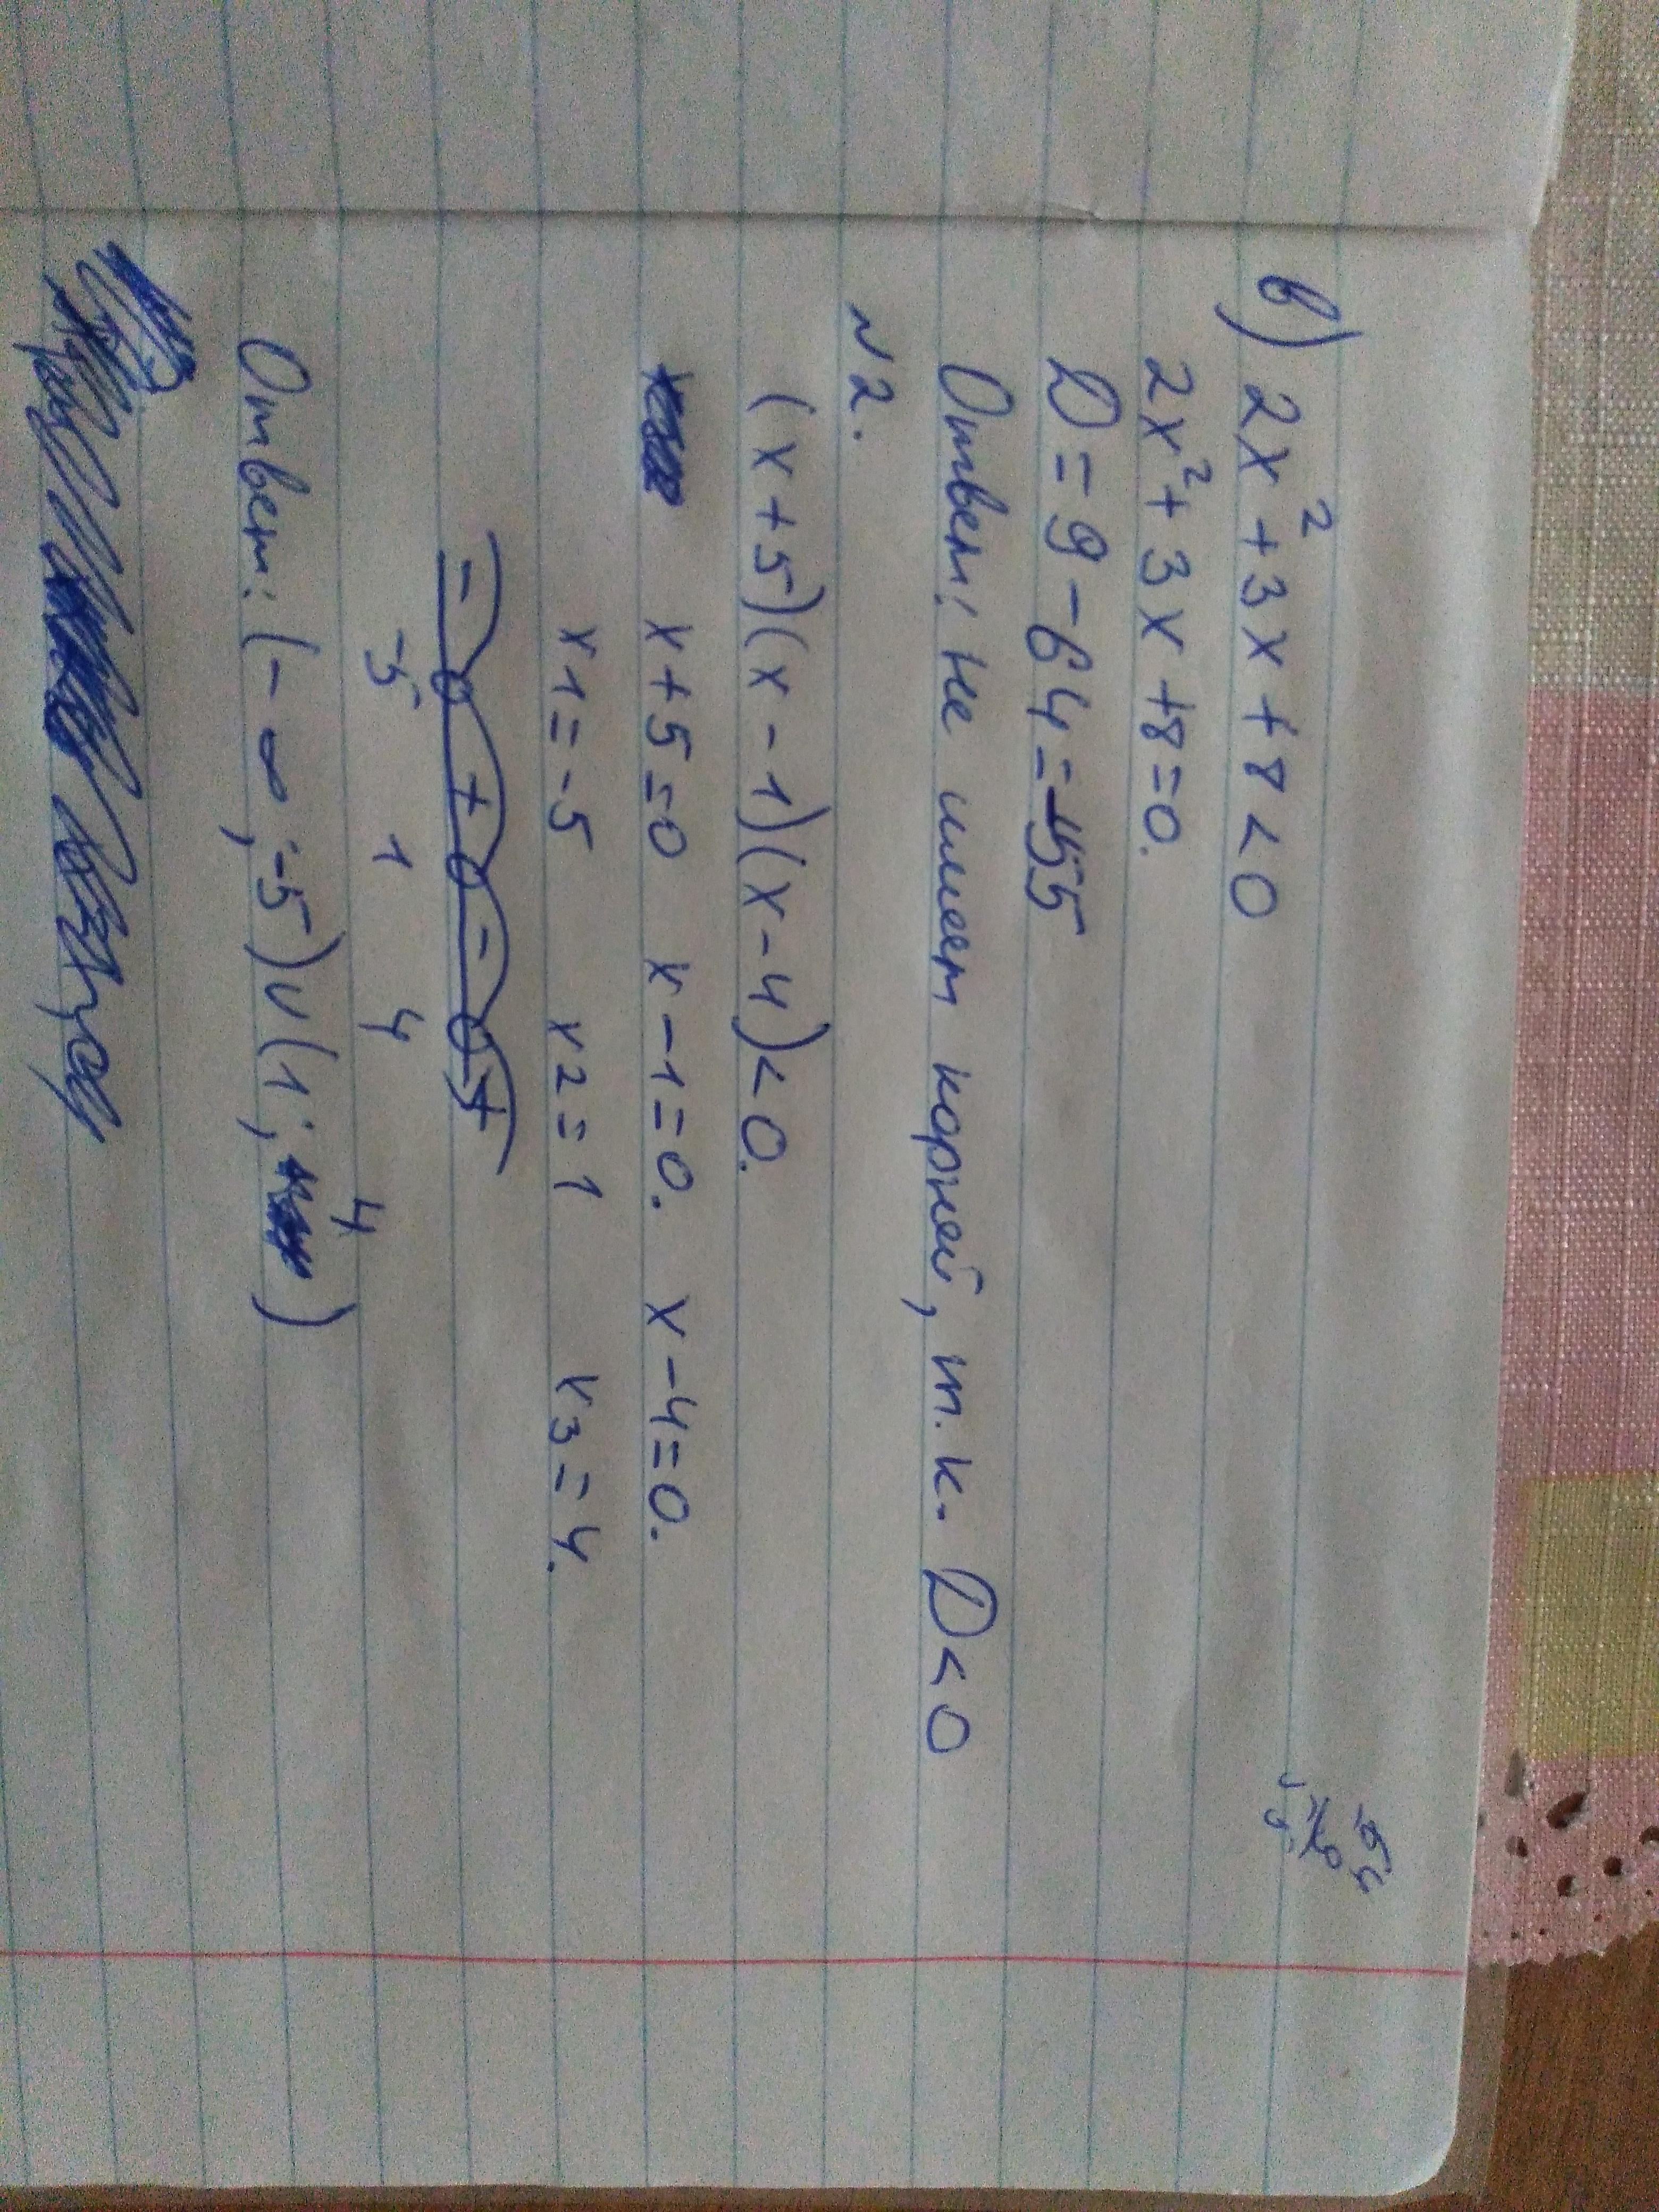 в) 2x² + 3x + 8 < 0
2x² + 3x + 8 = 0.
D = 9 - 64 = -55
Ответ: не имеет корней, т.к. D < 0
N 2.
(x + 5)(x - 1)(x - 4) < 0.
x + 5 = 0 x - 1 = 0. x - 4 = 0.
x1 = -5 x2 = 1 x3 = 4.
- + - +
-5 1 4
Ответ: (-∞; -5) ∪ (1; 4)